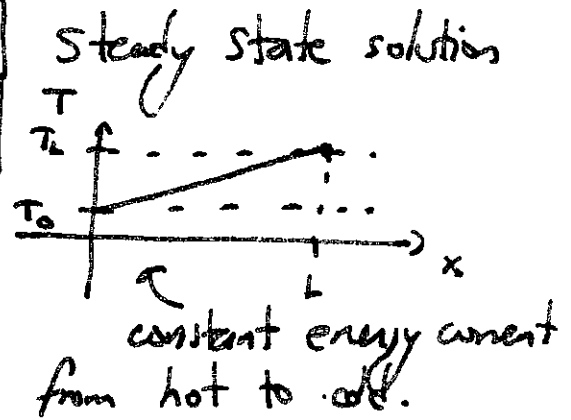 Steady State solution
T
T_L
T_0
x
L
constant energy current
from hot to cold.